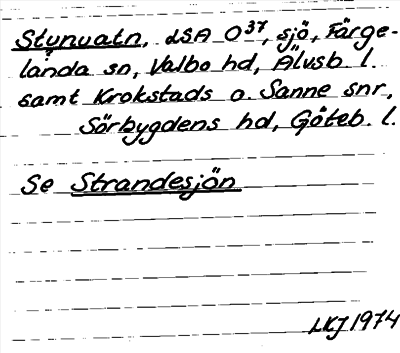 Stynvatn, LSA O 37, sjö, Färge-
landa sn, Valbo hd, Älvsb. l.
samt Krokstads o. Sanne snr,
Sörbygdens hd, Göteb. l.
Se Strandesjön
LKJ 1974